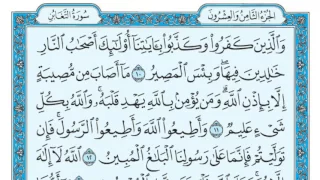 سُورَةُ التَّغَابُن
الجُزْءُ الثَّامِنُ وَالعِشْرُونَ
وَالَّذِينَ كَفَرُوا وَكَذَّبُوا بِآيَاتِنَا أُولَٰئِكَ أَصْحَٰبُ النَّارِ
خَٰلِدِينَ فِيهَا وَبِئْسَ الْمَصِيرُ ١٠ مَا أَصَابَ مِن مُّصِيبَةٍ
إِلَّا بِإِذْنِ اللَّهِ وَمَن يُؤْمِن بِاللَّهِ يَهْدِ قَلْبَهُ وَاللَّهُ بِكُلِّ
شَيْءٍ عَلِيمٌ ١١ وَأَطِيعُوا اللَّهَ وَأَطِيعُوا الرَّسُولَ فَإِن
تَوَلَّيْتُمْ فَإِنَّمَا عَلَىٰ رَسُولِنَا الْبَلَٰغُ الْمُبِينُ ١٢ اللَّهُ لَا إِلَٰهَ